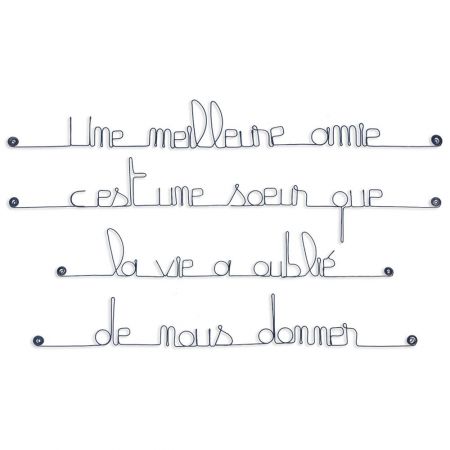 Une meilleure amie
c'est une soeur que
la vie a oublié
de nous donner